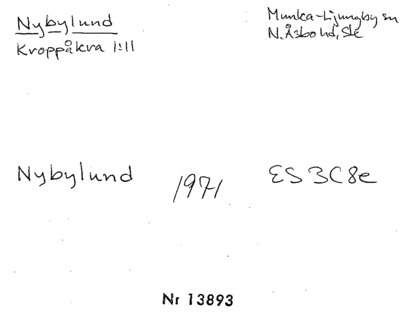 Nybylund
Kroppåkra 1:11
Munka-Ljungby sn
N. Åsbo hd, Ske
Nybylund 1971 ES 3C8e
Nr 13893